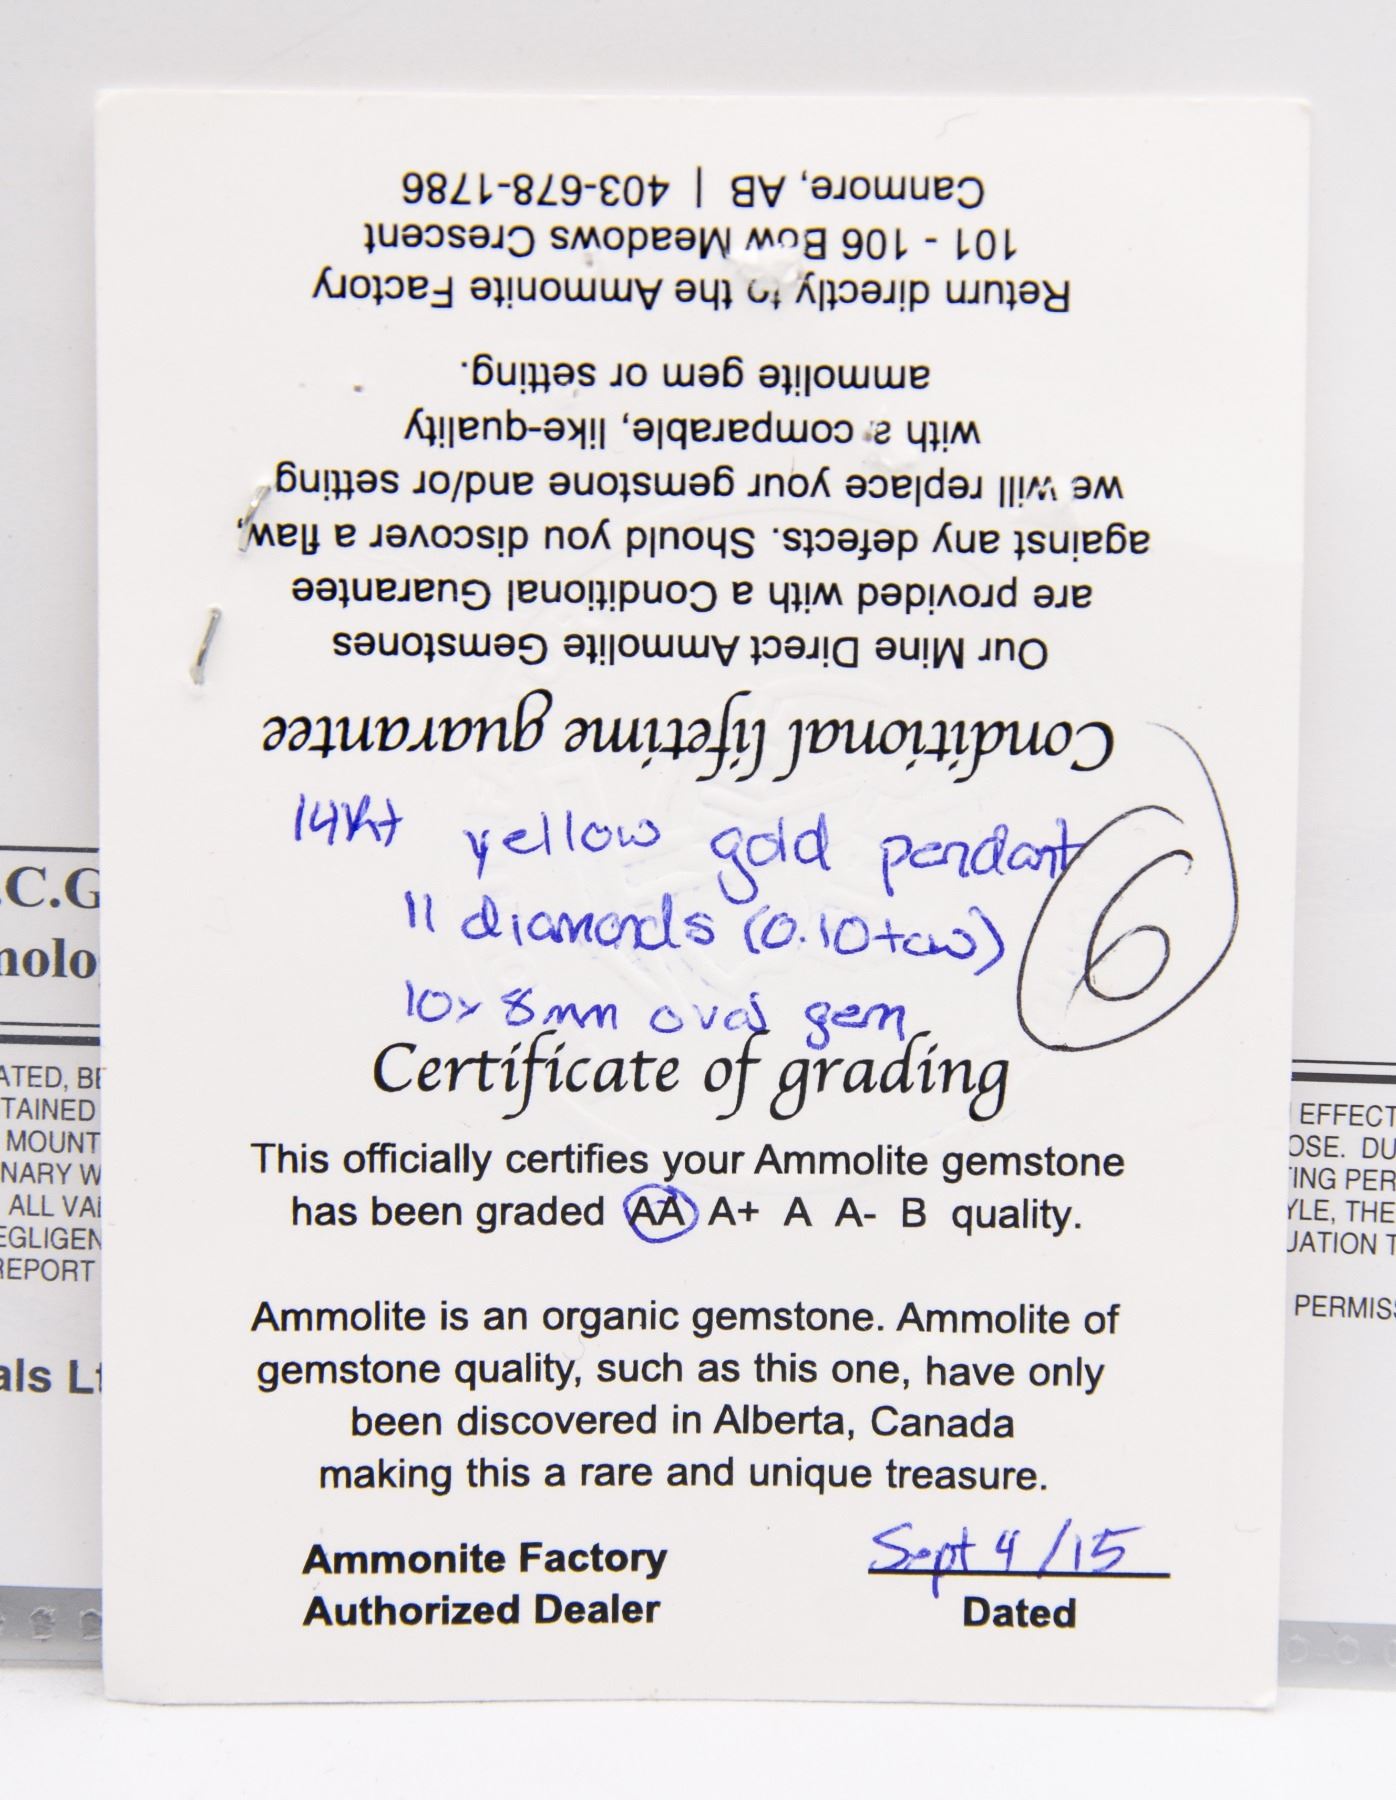 Canmore, AB | 403-678-1786
101 - 106 Bow Meadows Crescent
Return directly to the Ammonite Factory
ammolite gem or setting.
with a comparable, like-quality
we will replace your gemstone and/or setting
against any defects. Should you discover a flaw,
are provided with a Conditional Guarantee
Our Mine Direct Ammolite Gemstones
Conditional lifetime guarantee
14kt yellow gold pendant
11 diamonds (0.10tcw)
6
10x8mm oval gem
Certificate of grading
This officially certifies your Ammolite gemstone
has been graded AA A+ A A- B quality.
Ammolite is an organic gemstone. Ammolite of
gemstone quality, such as this one, have only
been discovered in Alberta, Canada
making this a rare and unique treasure.
Ammonite Factory
Authorized Dealer
Sept 4/15
Dated
.C.G
nolo
ATED, BE
TAINED
MOUNT
NARY W
ALL VAL
EGLIGEN
REPORT
als Lt
EFFECT
OSE. DU
ING PER
YLE, THE
UATION T
PERMISS